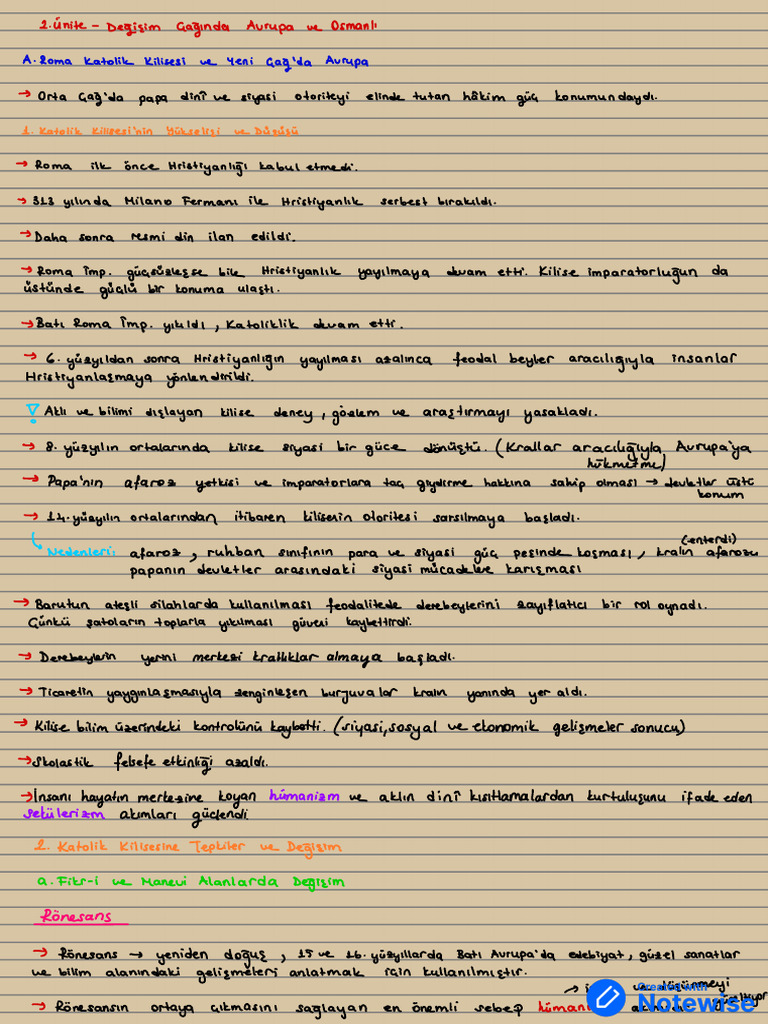 2. Ünite - Değişim Çağında Avrupa ve Osmanlı
A. Roma Katolik Kilisesi ve Yeni Çağ'da Avrupa
→ Orta Çağ'da papa dinî ve siyasi otoriteyi elinde tutan hâkim güç konumundaydı.
1. Katolik Kilisesi'nin Yükselişi ve Düşüşü
→ Roma ilk önce Hristiyanlığı kabul etmedi.
→ 313 yılında Milano Fermanı ile Hristiyanlık serbest bırakıldı.
→ Daha sonra resmi din ilan edildi.
→ Roma İmp. güçsüzleşse bile Hristiyanlık yayılmaya devam etti. Kilise imparatorluğun da
üstünde güçlü bir konuma ulaştı.
→ Batı Roma İmp. yıkıldı, Katoliklik devam etti.
→ 6. yüzyıldan sonra Hristiyanlığın yayılması azalınca feodal beyler aracılığıyla insanlar
Hristiyanlaşmaya yönlendirildi.
Aklı ve bilimi dışlayan kilise deney, gözlem ve araştırmayı yasakladı.
→ 8. yüzyılın ortalarında kilise siyasi bir güce dönüştü. (Krallar aracılığıyla Avrupa'ya
hükmetme)
→ Papa'nın afaroz yetkisi ve imparatorlara taç giydirme hakkına sahip olması → devletler üstü
konum
→ 14. yüzyılın ortalarından itibaren kilisenin otoritesi sarsılmaya başladı.
(-enterdi)
Nedenleri: afaroz, ruhban sınıfının para ve siyasi güç peşinde koşması, kralın afarozu
papanın devletler arasındaki siyasi mücadeleye karışması
→ Barutun ateşli silahlarda kullanılması feodalitede derebeylerini zayıflatıcı bir rol oynadı.
Çünkü şatoların toplarla yıkılması güveni kaybettirdi.
→ Derebeylerin yerini merkezi krallıklar almaya başladı.
→ Ticaretin yaygınlaşmasıyla zenginleşen burjuvalar kralın yanında yer aldı.
→ Kilise bilim üzerindeki kontrolünü kaybetti. (siyasi, sosyal ve ekonomik gelişmeler sonucu)
→ Skolastik felsefe etkinliği azaldı.
→ İnsanı hayatın merkezine koyan hümanizm ve aklın dinî kısıtlamalardan kurtuluşunu ifade eden
sekülerizm akımları güçlendi
2. Katolik Kilisesine Tepkiler ve Değişim
a. Fikr-i ve Manevi Alanlarda Değişim
Rönesans
→ Rönesans → yeniden doğuş, 15 ve 16. yüzyıllarda Batı Avrupa'da edebiyat, güzel sanatlar
ve bilim alanındaki gelişmeleri anlatmak için kullanılmıştır.
→ ve düşünmeyi
→ Rönesansın ortaya çıkmasını sağlayan en önemli sebep
Created with
Notewise